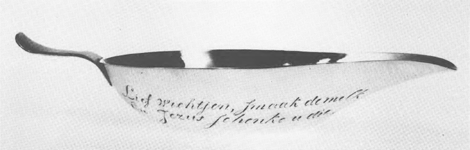 Lief wichtjen, smaak de melk
Jezus schenke u die